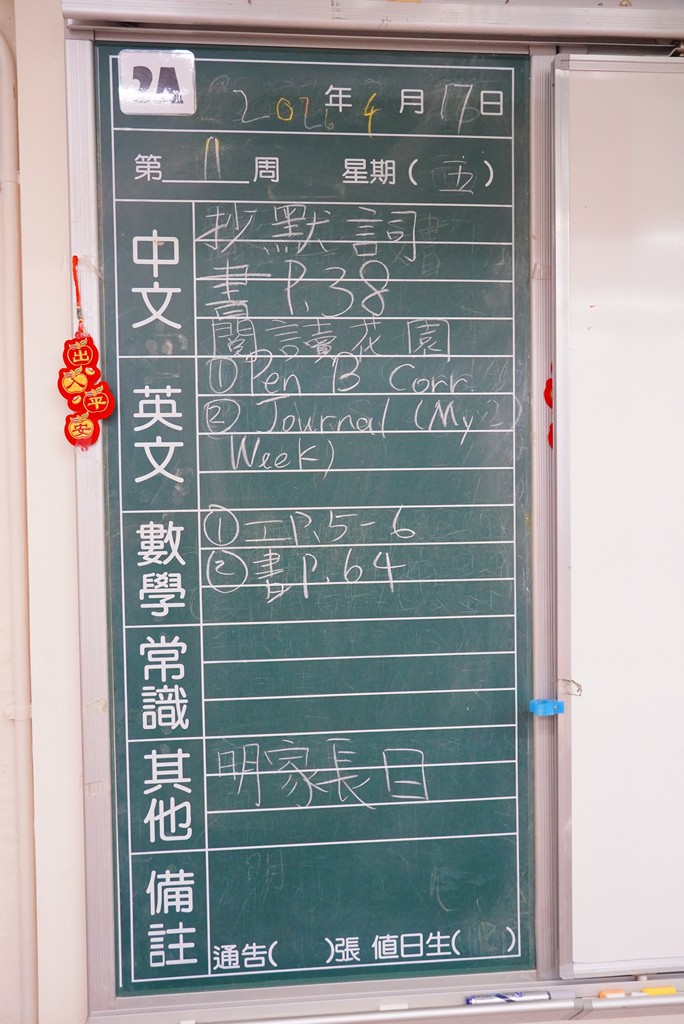 2A
2026年4月17日
第 11 周 星期(五)
中文
抄默詞
書 P.38
閱讀花園
英文
① Pen B Corr.
② Journal (My
Week)
數學
① 工P.5-6
② 書P.64
常識
其他
明家長日
備註
通告( )張 值日生( )
出
入
平
安